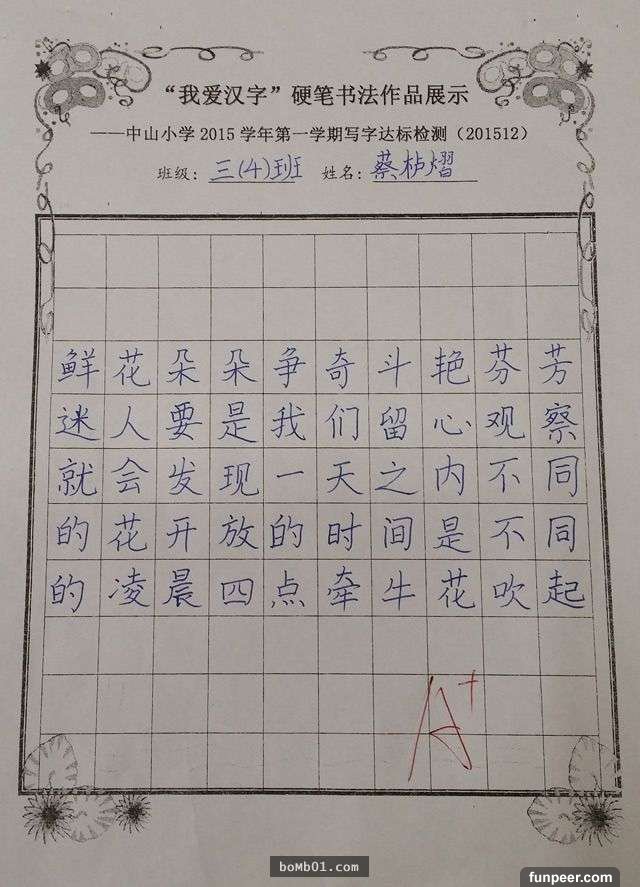 “我爱汉字”硬笔书法作品展示
——中山小学2015学年第一学期写字达标检测（201512）
班级：三(4)班 姓名：蔡栌熠
鲜花朵朵争奇斗艳芬芳
迷人要是我们留心观察
就会发现一天之内不同
的花开放的时间是不同
的凌晨四点牵牛花吹起
A+
boMb01.com
funpeer.com